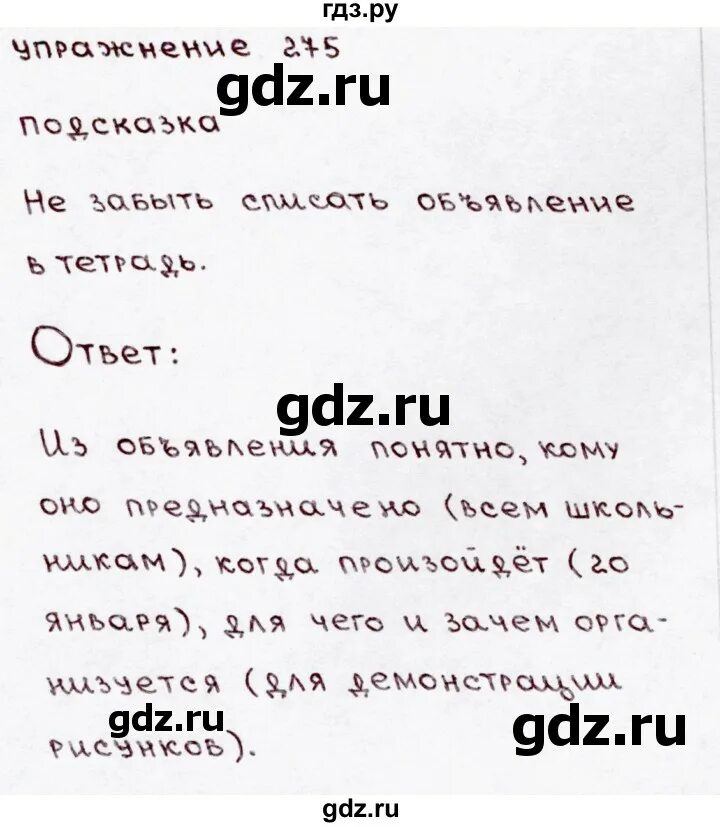 гдз.ру
упражнение 275
gdz.ru
подсказка
Не забыть списать объявление
в тетрадь.
Ответ:
gdz.ru
Из объявления понятно, кому
оно предназначено (всем школь-
никам), когда произойдёт (20
января), для чего и зачем орга-
низуется (для демонстрации
gdz.ru
рисунков).
gdz.ru
gdz.ru